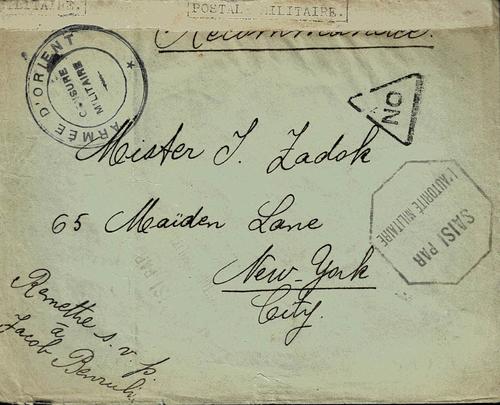 MILITAIRE.
POSTAL MILITAIRE.
Recommandée.
ARMÉE D'ORIENT
CENSURE
MILITAIRE
NO
Mister J. Zadok
65 Maiden Lane
New-York
City.
SAISI PAR
L'AUTORITÉ MILITAIRE
Remettre s. v. p.
à
Jacob Benrubi